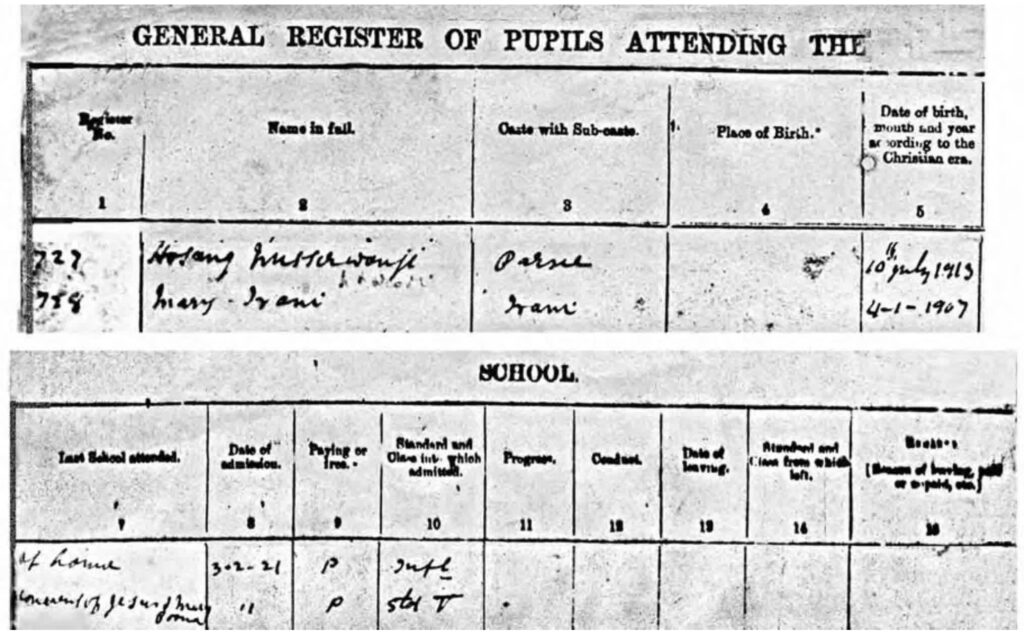 GENERAL REGISTER OF PUPILS ATTENDING THE
Register No. Name in full. Caste with Sub-caste. Place of Birth.* Date of birth, month and year according to the Christian era.
1 2 3 4 5
727 Hosang Parsee 10 July 1913
758 Mary Irani Irani 4-1-1907
SCHOOL.
Last School attended. Date of admission. Paying or free. Standard and Class into which admitted. Progress. Conduct. Date of leaving. Standard and Class from which left. [Reason of leaving, paid or unpaid, etc.]
7 8 9 10 11 12 13 14 15
at home 3-2-21 P Inft
Convent of Jesus & Mary " P Std V